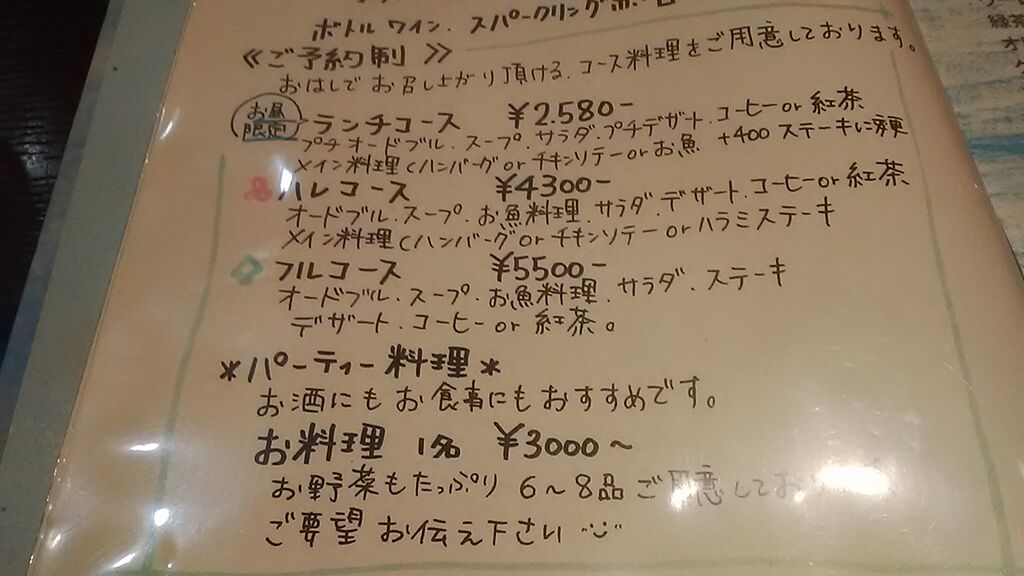 ボトルワイン、スパークリング
《ご予約制》
おはしでお召し上がり頂ける、コース料理をご用意しております。
お昼限定 ランチコース ¥2.580-
プチオードブル.スープ.サラダ.プチデザート.コーヒーor紅茶
メイン料理(ハンバーグorチキンソテーorお魚 +400ステーキに変更
ハレコース ¥4300-
オードブル.スープ.お魚料理.サラダ.デザート.コーヒーor紅茶
メイン料理(ハンバーグorチキンソテーorハラミステーキ
フルコース ¥5500-
オードブル.スープ.お魚料理.サラダ.ステーキ
デザート.コーヒーor紅茶。
*パーティー料理*
お酒にもお食事にもおすすめです。
お料理 1名 ¥3000～
お野菜もたっぷり 6～8品ご用意してお
ご要望お伝え下さい
緑茶